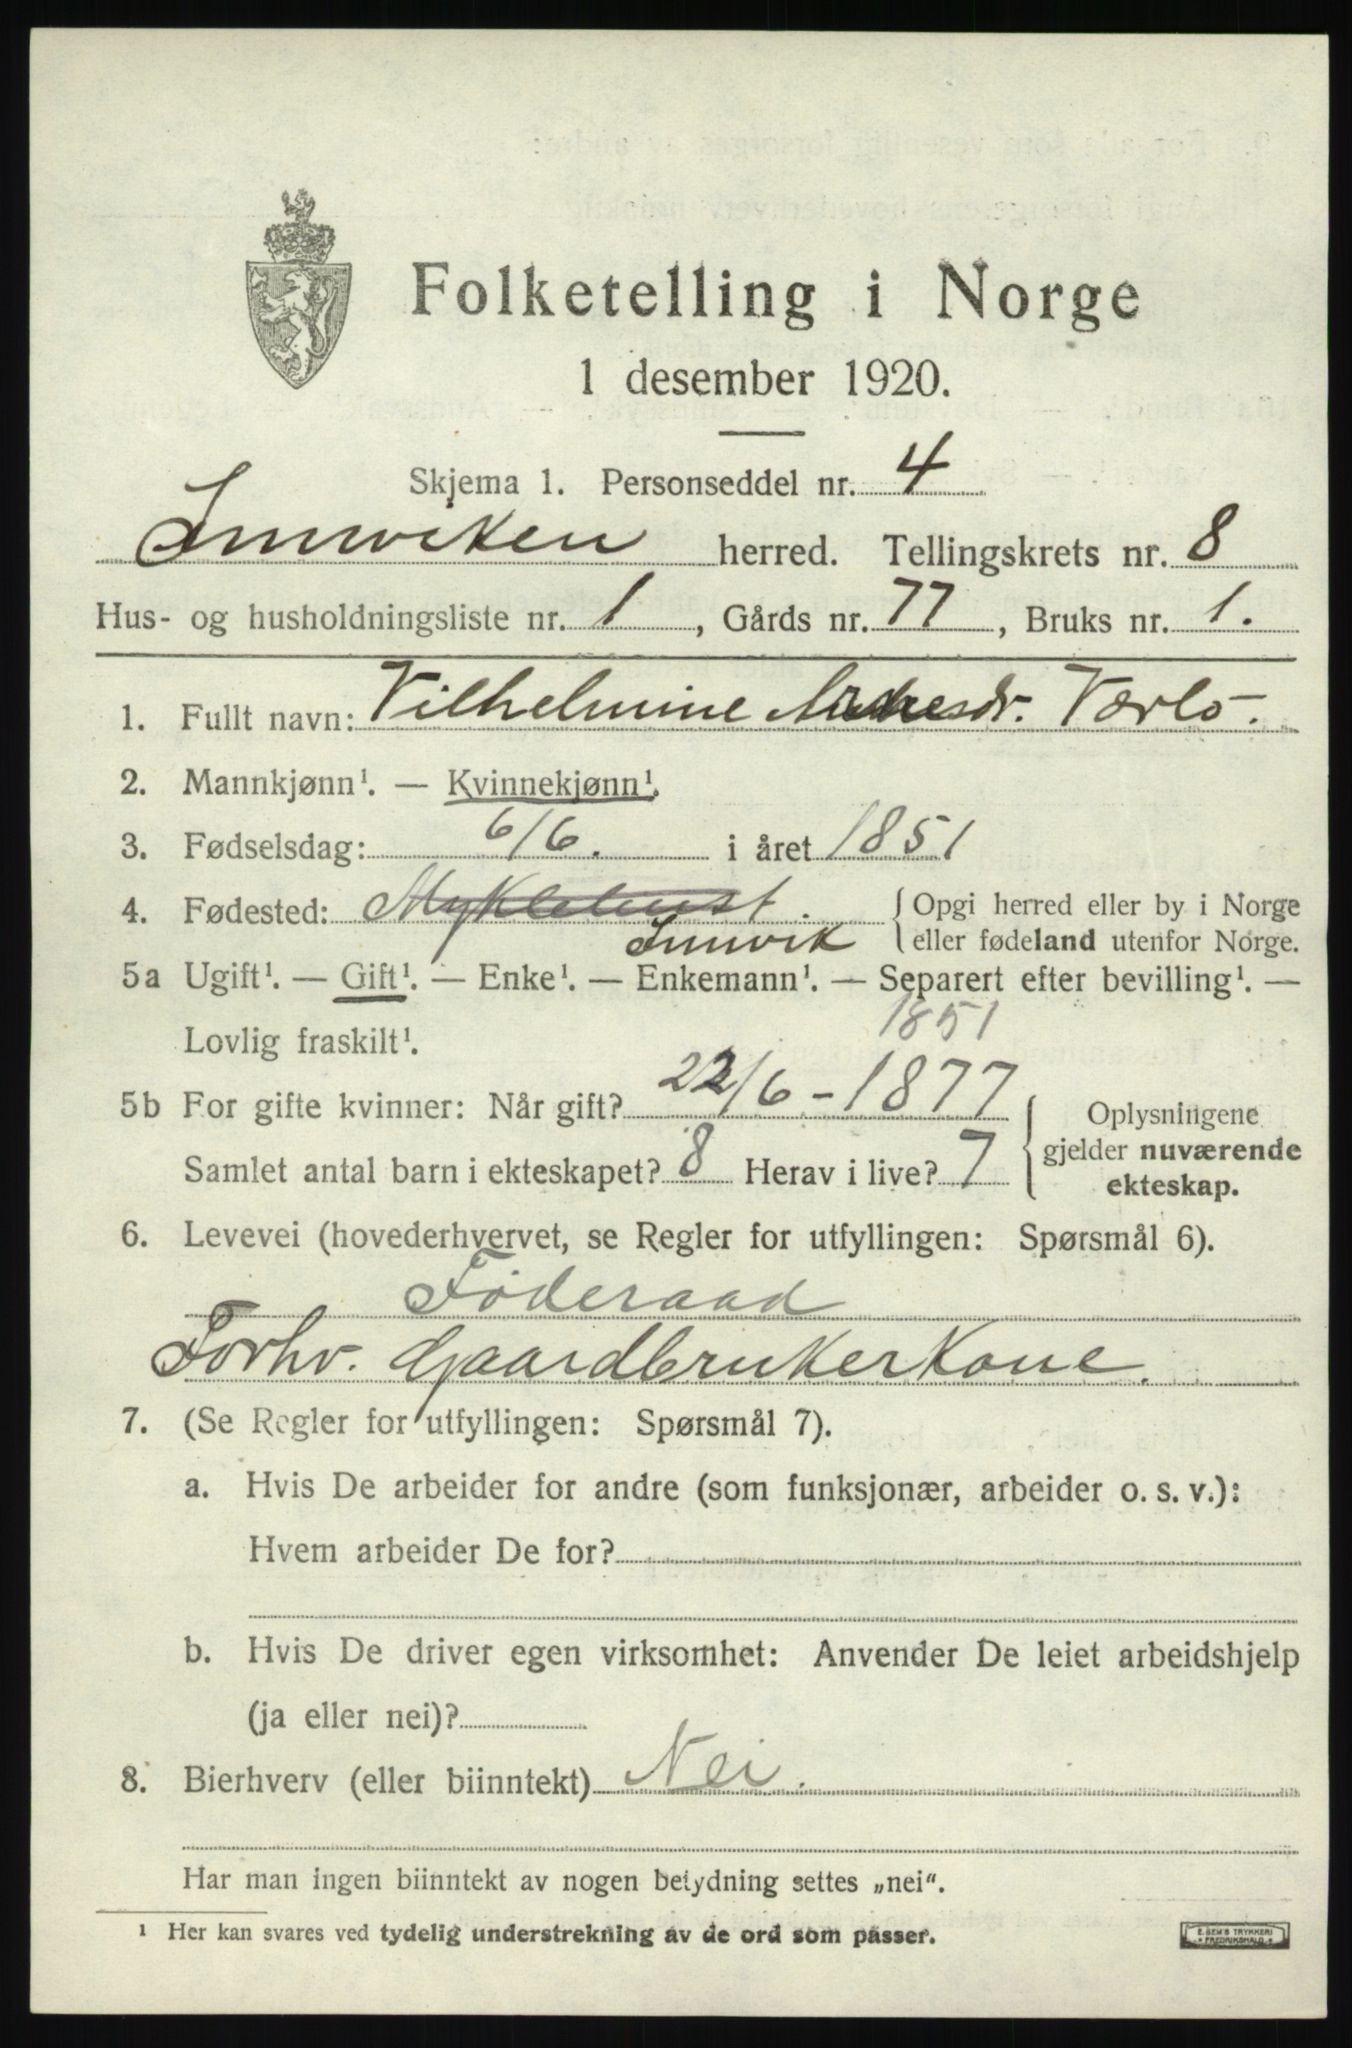 Folketelling i Norge
1 desember 1920.
Skjema 1. Personseddel nr. 4
Innviken herred. Tellingskrets nr. 8
Hus- og husholdningsliste nr. 1, Gårds nr. 77, Bruks nr. 1.
1. Fullt navn: Vilhelmine Andresdr. Værlo.
2. Mannkjønn¹. — Kvinnekjønn¹.
3. Fødselsdag: 6/6. i året 1851
4. Fødested: Myklebust. Opgi herred eller by i Norge
Innvik eller fødeland utenfor Norge.
5a Ugift¹. — Gift¹. — Enke¹. — Enkemann¹. — Separert efter bevilling¹. —
1851
Lovlig fraskilt¹.
5b For gifte kvinner: Når gift? 22/6 - 1877 Oplysningene
gjelder nuværende
Samlet antal barn i ekteskapet? 8 Herav i live? 7 ekteskap.
6. Levevei (hovederhvervet, se Regler for utfyllingen: Spørsmål 6).
Föderaad
Forhv. Gaardbrukerkone.
7. (Se Regler for utfyllingen: Spørsmål 7).
a. Hvis De arbeider for andre (som funksjonær, arbeider o. s. v.):
Hvem arbeider De for?
b. Hvis De driver egen virksomhet: Anvender De leiet arbeidshjelp
(ja eller nei)?
8. Bierhverv (eller biinntekt) Nei.
Har man ingen biinntekt av nogen betydning settes „nei".
¹ Her kan svares ved tydelig understrekning av de ord som passer.
E. SEM'S TRYKKERI
FREDRIKSHALD